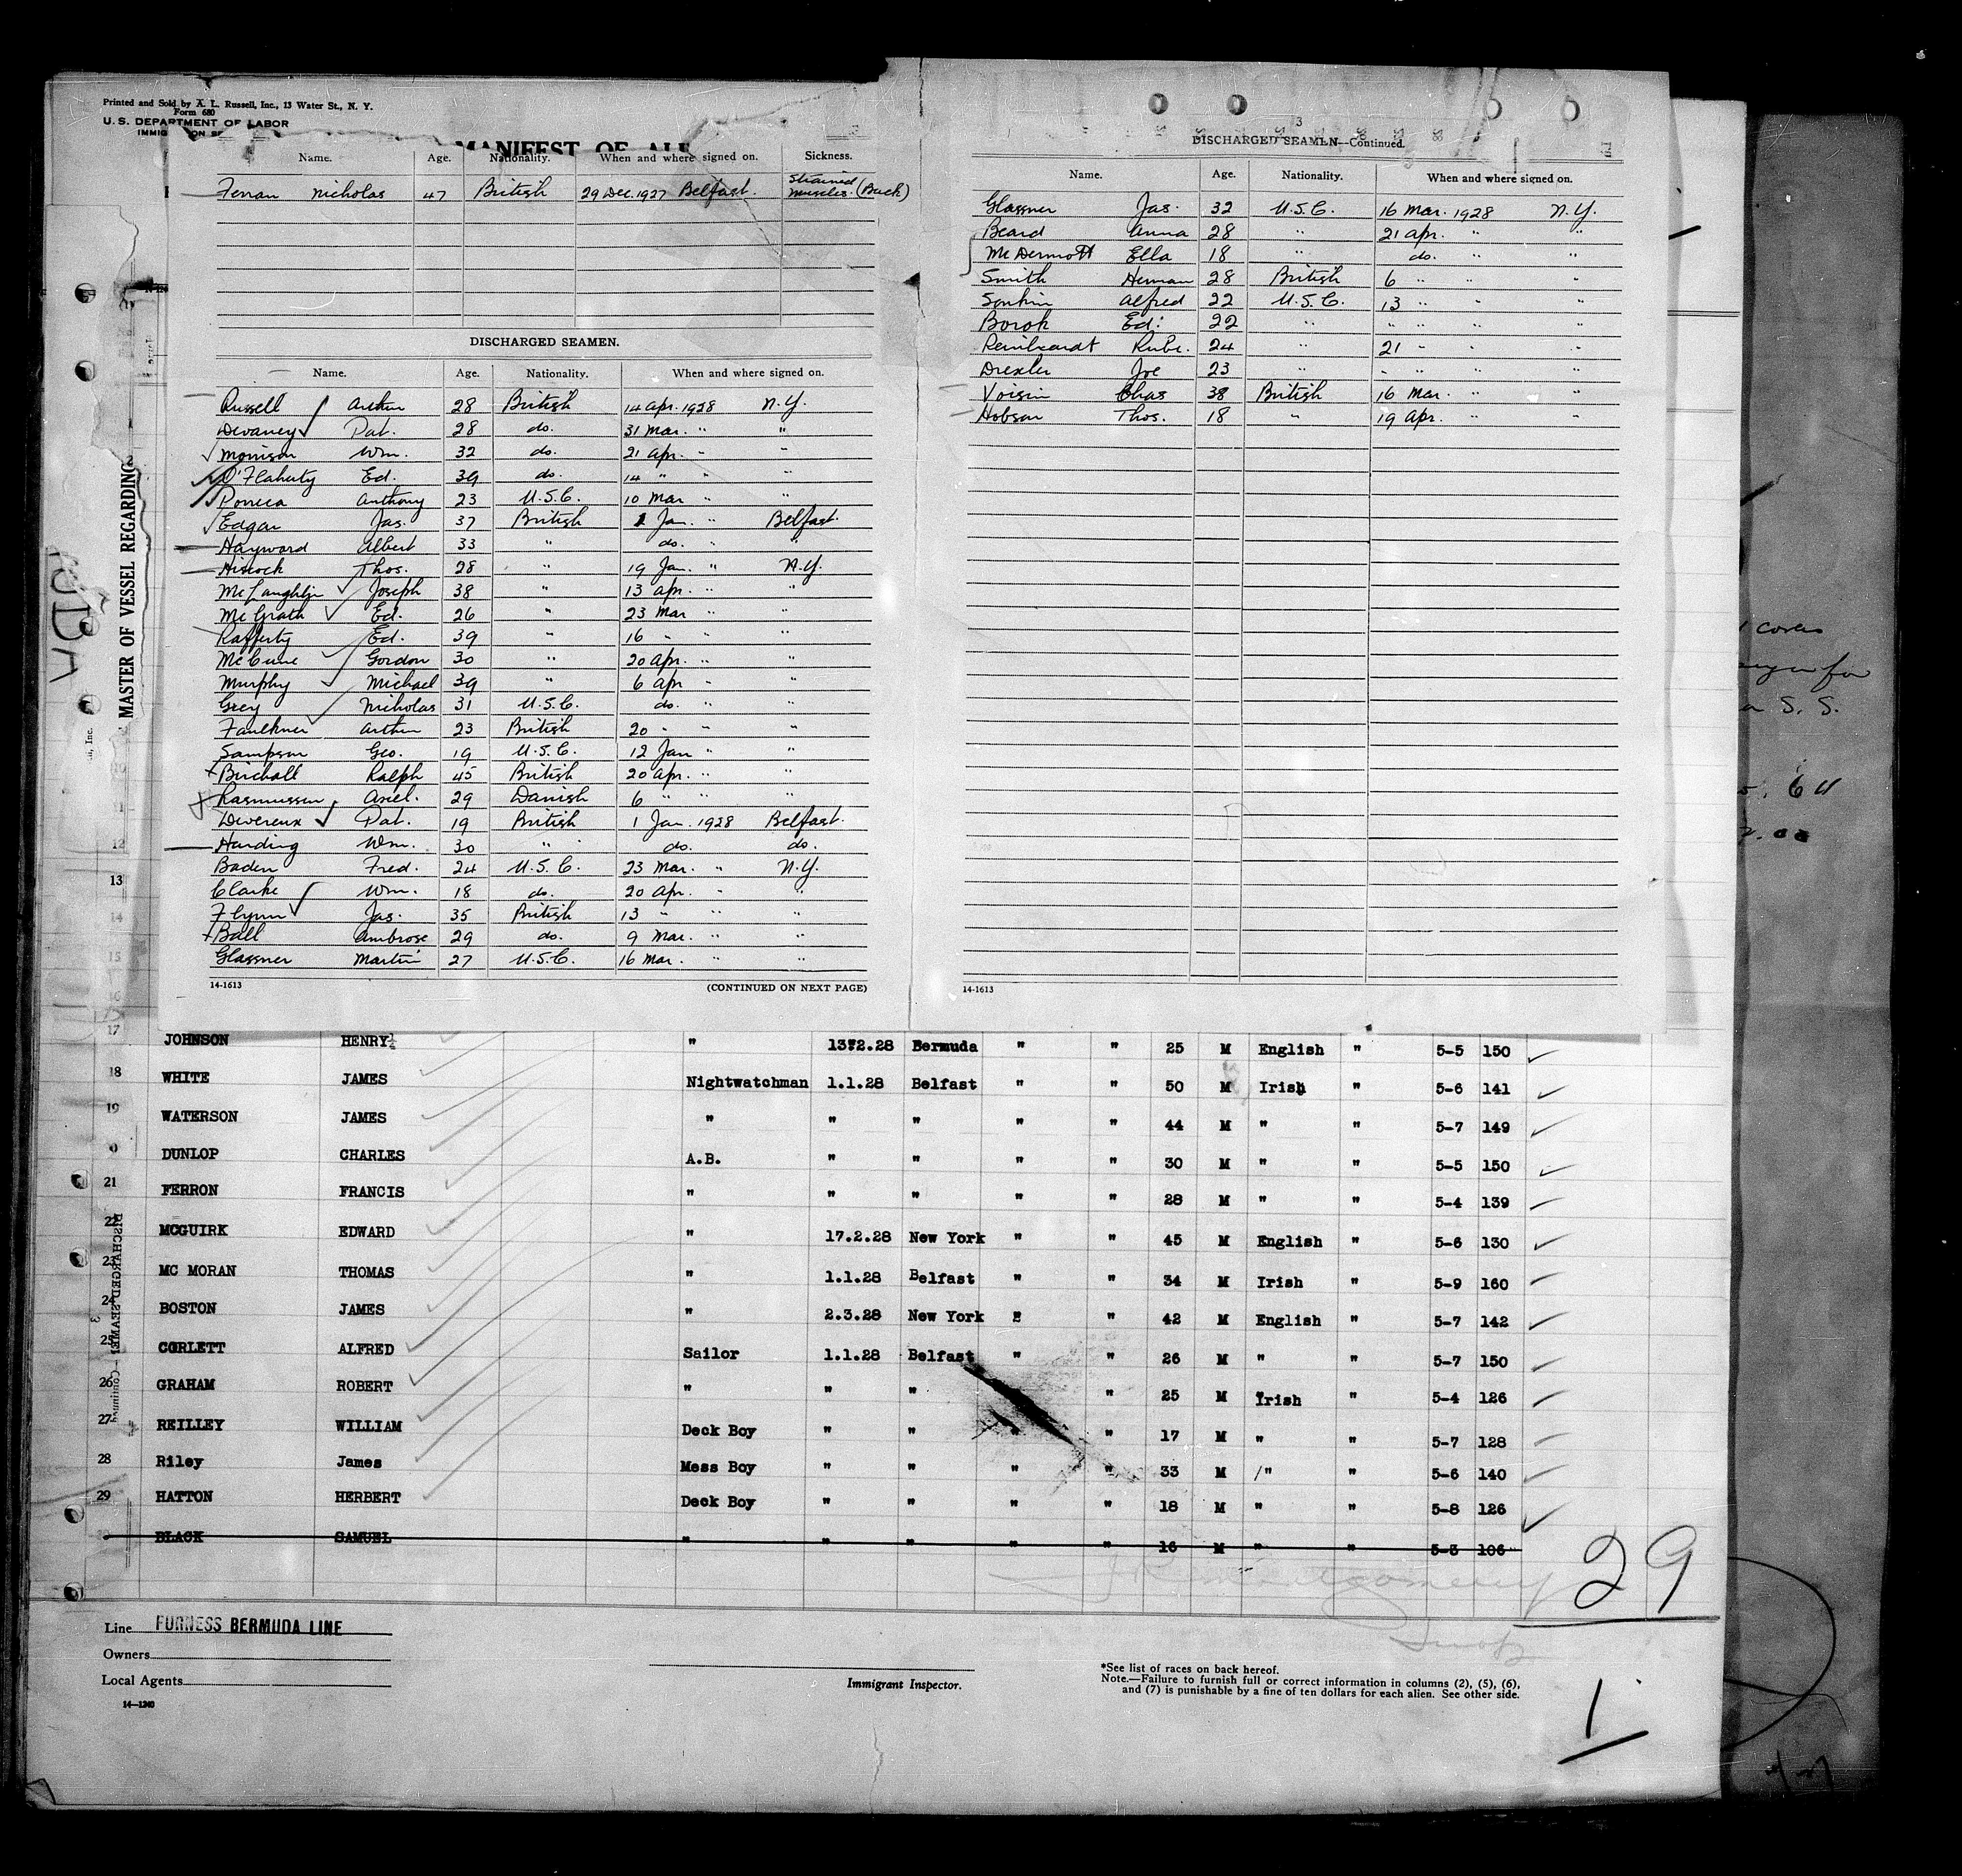 Printed and Sold by A. L. Russell, Inc., 13 Water St., N. Y.
Form 680
U. S. DEPARTMENT OF LABOR
MANIFEST OF
Name. Age. Nationality. When and where signed on. Sickness.
Ferran Nicholas 47 British 29 Dec. 1927 Belfast. Strained muscles. (Back)
DISCHARGED SEAMEN.
Name. Age. Nationality. When and where signed on.
Russell Arthur 28 British 14 Apr. 1928 N.Y.
Devaney Pat. 28 do. 31 Mar. " "
Morrison Wm. 32 do. 21 Apr. " "
O'Flaherty Ed. 39 do. 14 " " "
Anthony 23 U.S.C. 10 Mar " "
Edgar Jas. 37 British 1 Jan. " Belfast.
Hayward Albert 33 " do. " "
Hiscock Thos. 28 " 19 Jan. " N.Y.
McLaughlin Joseph 38 " 13 Apr. " "
McGrath Ed. 26 " 23 Mar " "
Rafferty Ed. 39 " 16 " " "
McCune Gordon 30 " 20 Apr. " "
Murphy Michael 39 " 6 Apr " "
Grey Nicholas 31 U.S.C. do. " "
Faulkner Arthur 23 British 20 " " "
Sampson Geo. 19 U.S.C. 12 Jan " "
Birchall Ralph 45 British 20 Apr. " "
Rasmussen Axel. 29 Danish 6 " " "
Devereux Pat. 19 British 1 Jan. 1928 Belfast.
Harding Wm. 30 " do. do.
Baden Fred. 24 U.S.C. 23 Mar. " N.Y.
Clarke Wm. 18 do. 20 Apr. " "
Flynn Jas. 35 British 13 " " "
Ball Ambrose 29 do. 9 Mar. " "
Glassner Martin 27 U.S.C. 16 Mar. " "
14-1613 (CONTINUED ON NEXT PAGE)
3
DISCHARGED SEAMEN—Continued.
Name. Age. Nationality. When and where signed on.
Glassner Jas. 32 U.S.C. 16 Mar. 1928 N.Y.
Beard Anna 28 " 21 Apr. " "
McDermott Ella 18 " do. " "
Smith Herman 28 British 6 " " "
Alfred 22 U.S.C. 13 " "
Borok Ed: 22 " " " " "
Reinhardt Rube. 24 " 21 " " "
Drexler Joe 23 " " " "
Voisin Chas 38 British 16 Mar. " "
Hobson Thos. 18 " 19 Apr. " "
14-1613
MASTER OF VESSEL REGARDING
17 JOHNSON HENRY " 13?2.28 Bermuda " " 25 M English " 5-5 150
18 WHITE JAMES Nightwatchman 1.1.28 Belfast " " 50 M Irish " 5-6 141
19 WATERSON JAMES " " " " " 44 M " " 5-7 149
0 DUNLOP CHARLES A.B. " " " " 30 M " " 5-5 150
21 FERRON FRANCIS " " " " " 28 M " " 5-4 139
22 MCGUIRK EDWARD " 17.2.28 New York " " 45 M English " 5-6 130
23 MC MORAN THOMAS " 1.1.28 Belfast " " 34 M Irish " 5-9 160
24 BOSTON JAMES " 2.3.28 New York " " 42 M English " 5-7 142
25 CORLETT ALFRED Sailor 1.1.28 Belfast " " 26 M " " 5-7 150
26 GRAHAM ROBERT " " " " 25 M Irish " 5-4 126
27 REILLEY WILLIAM Deck Boy " " " " 17 M " " 5-7 128
28 Riley James Mess Boy " " " " 33 M /" " 5-6 140
29 HATTON HERBERT Deck Boy " " " " 18 M " " 5-8 126
BLACK SAMUEL " " " " " 16 M " " 5-3 106
29
Line FURNESS BERMUDA LINE
Owners
Local Agents
14—1240
Immigrant Inspector.
*See list of races on back hereof.
Note.—Failure to furnish full or correct information in columns (2), (5), (6),
and (7) is punishable by a fine of ten dollars for each alien. See other side.
1